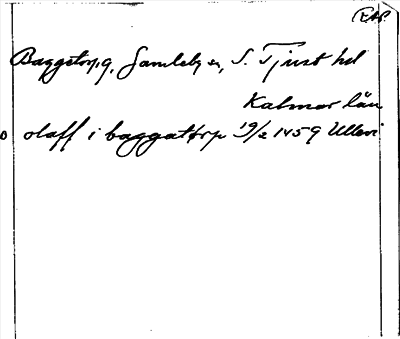 Baggetorp, g, Gamleby sn, S. Tjust hd
Kalmar län
olaff i baggattorp 19/2 1459 Ullevi